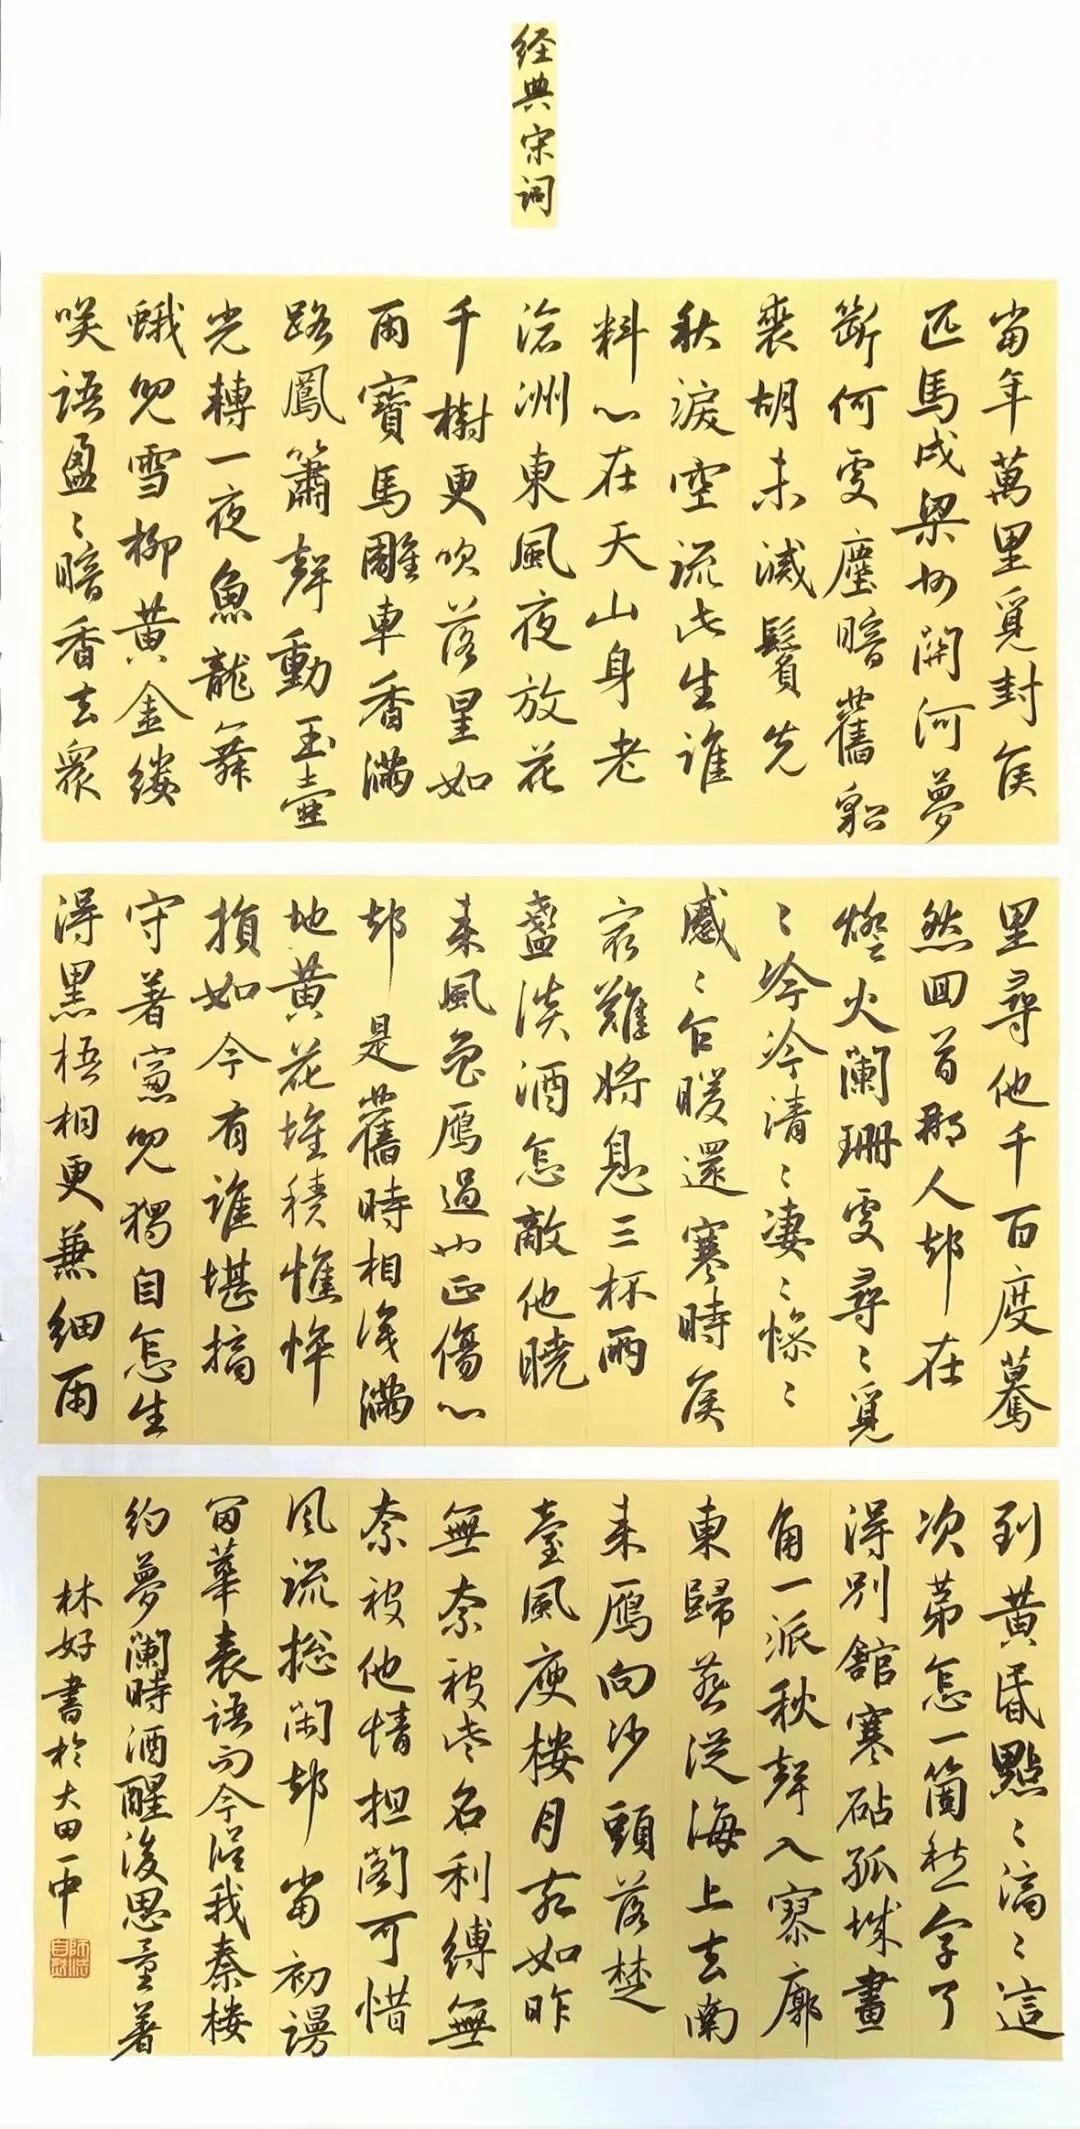 经典宋词
當年萬里覓封侯
匹馬戍梁州関河夢
斷何處塵暗舊貂
裘胡未滅鬢先
秋淚空流此生誰
料心在天山身老
滄洲東風夜放花
千樹更吹落星如
雨寶馬雕車香滿
路鳳簫聲動玉壺
光轉一夜魚龍舞
蛾兒雪柳黃金縷
笑語盈〻暗香去眾
里尋他千百度驀
然回首那人却在
燈火闌珊處尋〻覓
〻冷冷清〻凄〻慘〻
戚〻乍暖還寒時候
最難將息三杯兩
盞淡酒怎敵他曉
來風急雁過也正傷心
却是舊時相識滿
地黃花堆積憔悴
損如今有誰堪摘
守著窗兒獨自怎生
得黑梧桐更兼細雨
到黃昏點〻滴〻這
次第怎一箇愁字了
得別館寒砧孤城畫
角一派秋聲入寥廓
東歸燕從海上去南
來雁向沙頭落楚
臺風庾樓月宛如昨
無奈被些名利縛無
奈被他情担閣可惜
風流總閑却當初謾
留華表語而今誤我秦樓
約夢闌時酒醒後思量著
林好書於大田一中
師法自然